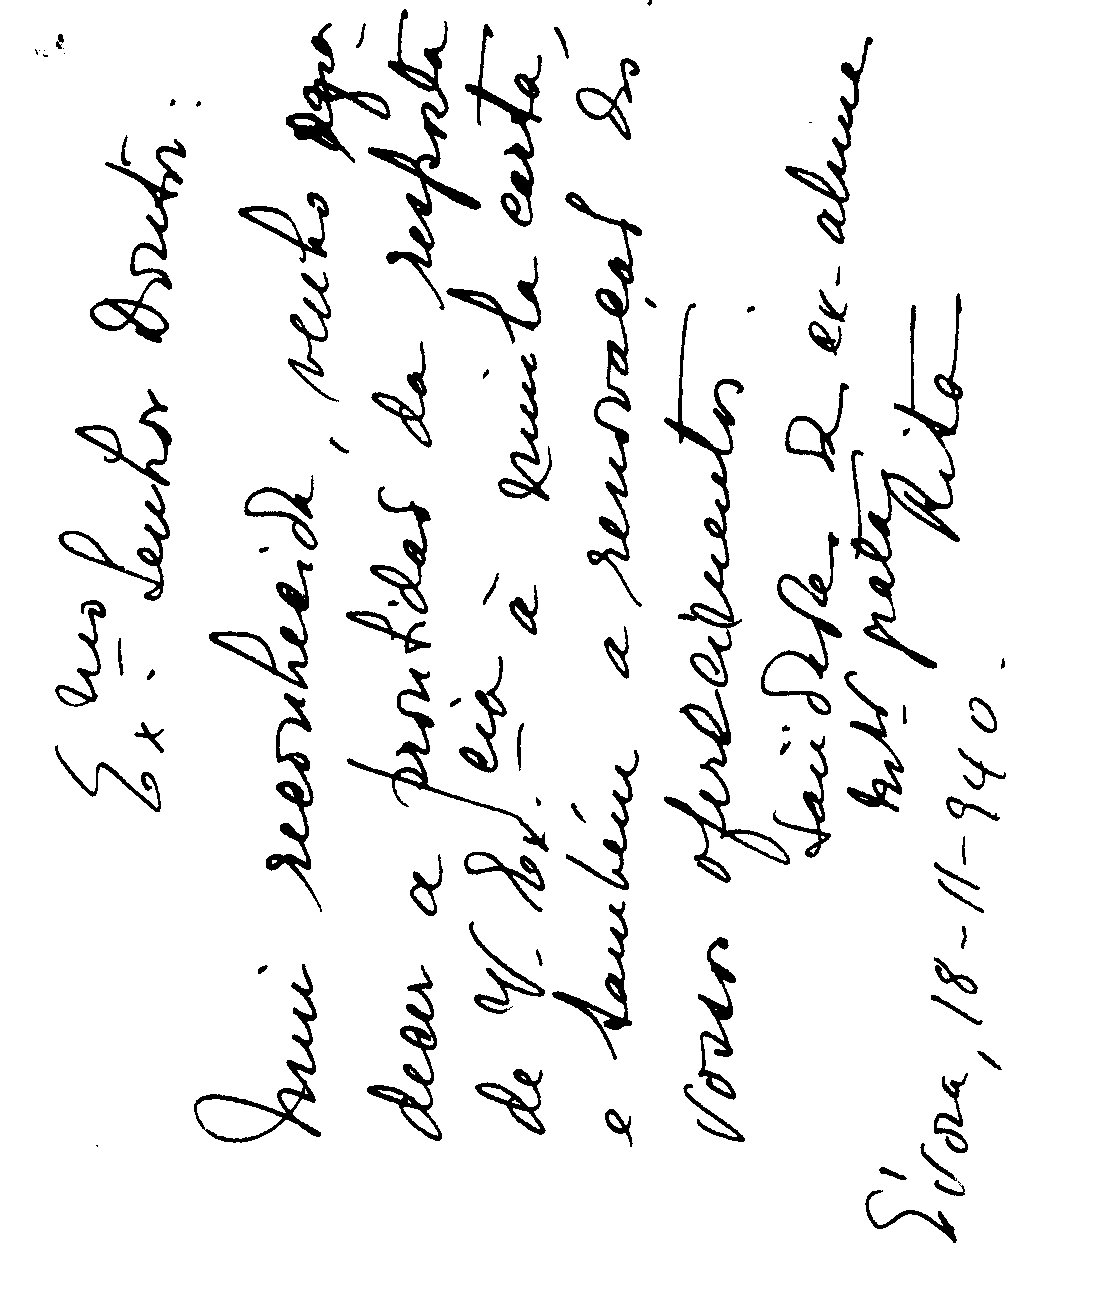 Ex.mo Senhor Doutor:
Mui reconhecida, venho agra-
decer a prontidão da resposta
de V. Ex.cia à minha carta,
e também a renovação do
vosso oferecimento.
Saúda-se a ex-aluna
muito grata
Rita
Évora, 18-11-940.